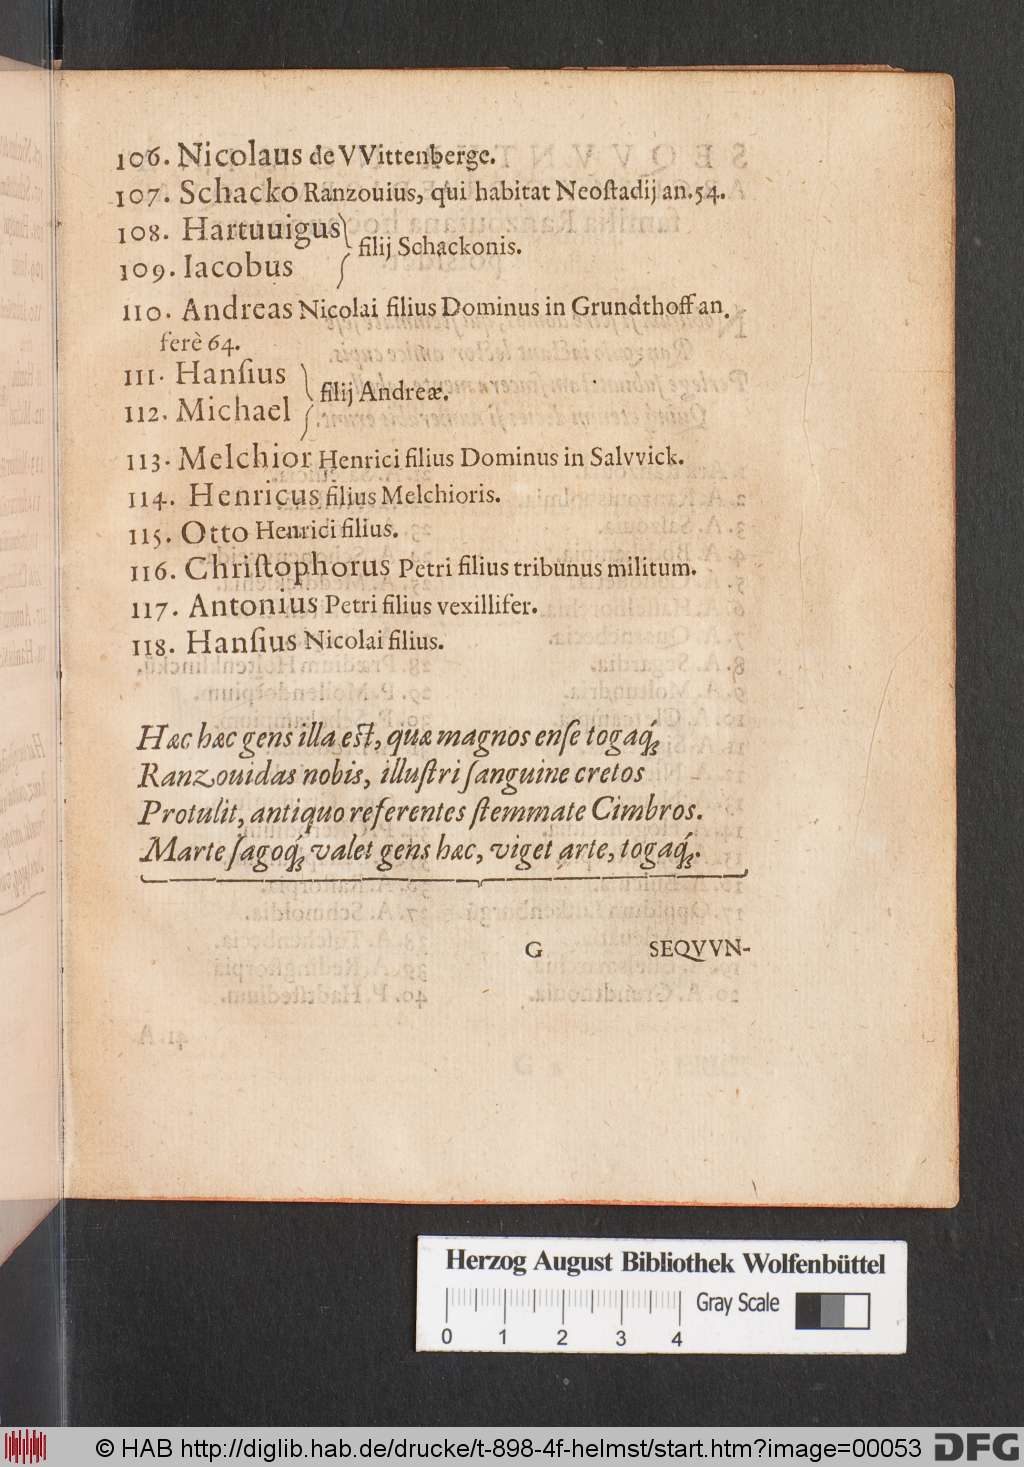 106. Nicolaus de VVittenberge.
107. Schacko Ranzouius, qui habitat Neoſtadij an.54.
108. Hartuuigus
filij Schackonis.
109. Iacobus
110. Andreas Nicolai filius Dominus in Grundthoff an.
ferè 64.
111. Hanſius
filij Andreæ.
112. Michael
113. Melchior Henrici filius Dominus in Salvvick.
114. Henricus filius Melchioris.
115. Otto Henrici filius.
116. Chriſtophorus Petri filius tribunus militum.
117. Antonius Petri filius vexillifer.
118. Hanſius Nicolai filius.
Hæc hæc gens illa eſt, quæ magnos enſe togaq́;
Ranzouidas nobis, illuſtri ſanguine cretos
Protulit, antiquo referentes ſtemmate Cimbros.
Marte ſagoq́; valet gens hæc, viget arte, togaq́;.
G SEQVVN-
Herzog August Bibliothek Wolfenbüttel
Gray Scale
0 1 2 3 4
© HAB http://diglib.hab.de/drucke/t-898-4f-helmst/start.htm?image=00053 DFG